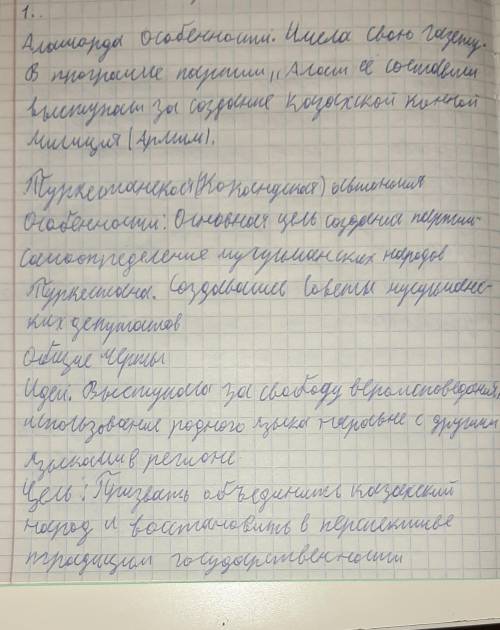 1..
Алашорда особенности. Имела свою газету.
В программе партии „Алаш ее составили
выступали за создание Казахской конной
милиции (Армии).
Туркестанская (Кокандская) автономия
Особенности: Основная цель создания партии-
самоопределение мусульманских народов
Туркестана. Создавались Советы мусульманс-
ких депутатов
Общие черты
Идеи. Выступала за свободу вероисповедания,
использования родного языка наравне с другими
языками в регионе.
Цель: Призвать объединить казахский
народ и восстановить в перспективе
традиции государственности